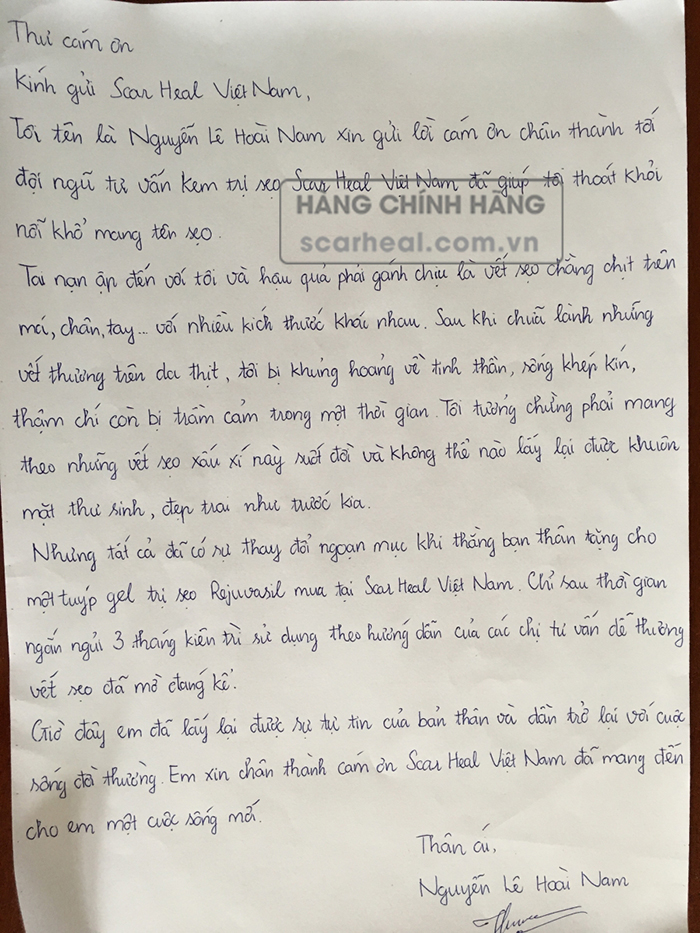 Thư cám ơn
Kính gửi Scar Heal Việt Nam,
Tôi tên là Nguyễn Lê Hoài Nam xin gửi lời cám ơn chân thành tới
đội ngũ tư vấn kem trị sẹo Scar Heal Việt Nam đã giúp tôi thoát khỏi
HÀNG CHÍNH HÃNG
scarheal.com.vn
nỗi khổ mang tên sẹo.
Tai nạn ập đến với tôi và hậu quả phải gánh chịu là vết sẹo chằng chịt trên
má, chân, tay... với nhiều kích thước khác nhau. Sau khi chữa lành những
vết thương trên da thịt, tôi bị khủng hoảng về tinh thần, sống khép kín,
thậm chí còn bị trầm cảm trong một thời gian. Tôi tưởng chừng phải mang
theo những vết sẹo xấu xí này suốt đời và không thể nào lấy lại được khuôn
mặt thư sinh, đẹp trai như trước kia.
Nhưng tất cả đã có sự thay đổi ngoạn mục khi thằng bạn thân tặng cho
một tuýp gel trị sẹo Rejuvasil mua tại Scar Heal Việt Nam. Chỉ sau thời gian
ngắn ngủi 3 tháng kiên trì sử dụng theo hướng dẫn của các chị tư vấn dễ thương
vết sẹo đã mờ đáng kể.
Giờ đây em đã lấy lại được sự tự tin của bản thân và dần trở lại với cuộc
sống đời thường. Em xin chân thành cám ơn Scar Heal Việt Nam đã mang đến
cho em một cuộc sống mới.
Thân ái,
Nguyễn Lê Hoài Nam